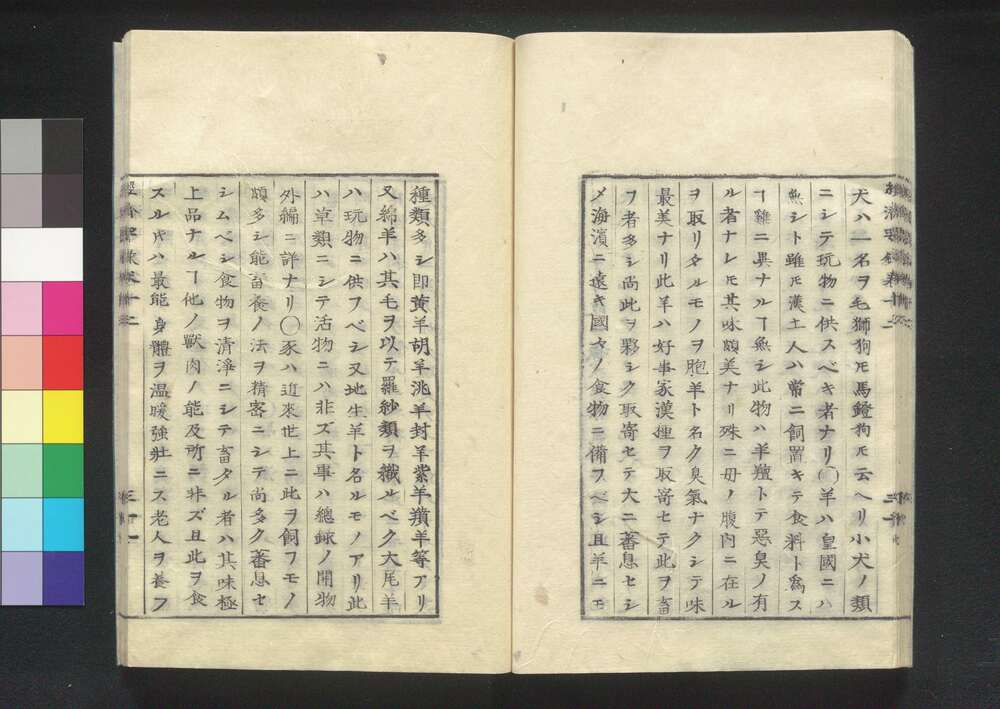 犬ハ一名ヲ毛獅狗𪜈馬鐙狗𪜈云ヘリ小犬ノ類
ニシテ玩物ニ供スベキ者ナリ〇羊ハ皇國ニハ
無シト雖𪜈漢土人ハ常ニ飼置キテ食料ト為ス
ヿ雞ニ異ナルヿ無シ此物ハ羊羶トテ惡臭ノ有
ル者ナレ𪜈其味頗美ナリ殊ニ母ノ腹内ニ在ル
ヲ取リタルモノヲ胞羊ト名ク臭氣ナクシテ味
最美ナリ此羊ハ好事家漢種ヲ取寄セテ此ヲ畜
フ者多シ尚此ヲ夥シク取寄セテ大ニ蕃息セシ
メ海濱ニ遠キ國々ノ食物ニ備フベシ且羊ニモ
種類多シ即黄羊胡羊洮羊封羊紫羊羵羊等アリ
又綿羊ハ其毛ヲ以テ羅紗類ヲ織ルベク大尾羊
ハ玩物ニ供フベシ又地生羊ト名ルモノアリ此
ハ草類ニシテ活物ニハ非ズ其事ハ總録ノ開物
外編ニ詳ナリ〇豕ハ近來世上ニ此ヲ飼フモノ
頗多シ能畜養ノ法ヲ精密ニシテ尚多ク蕃息セ
シムベシ食物ヲ清淨ニシテ畜タル者ハ其味極
上品ナルヿ他ノ獸肉ノ能及所ニ非ズ且此ヲ食
スル𪜈ハ最能身體ヲ温暖強壯ニス老人ヲ養フ